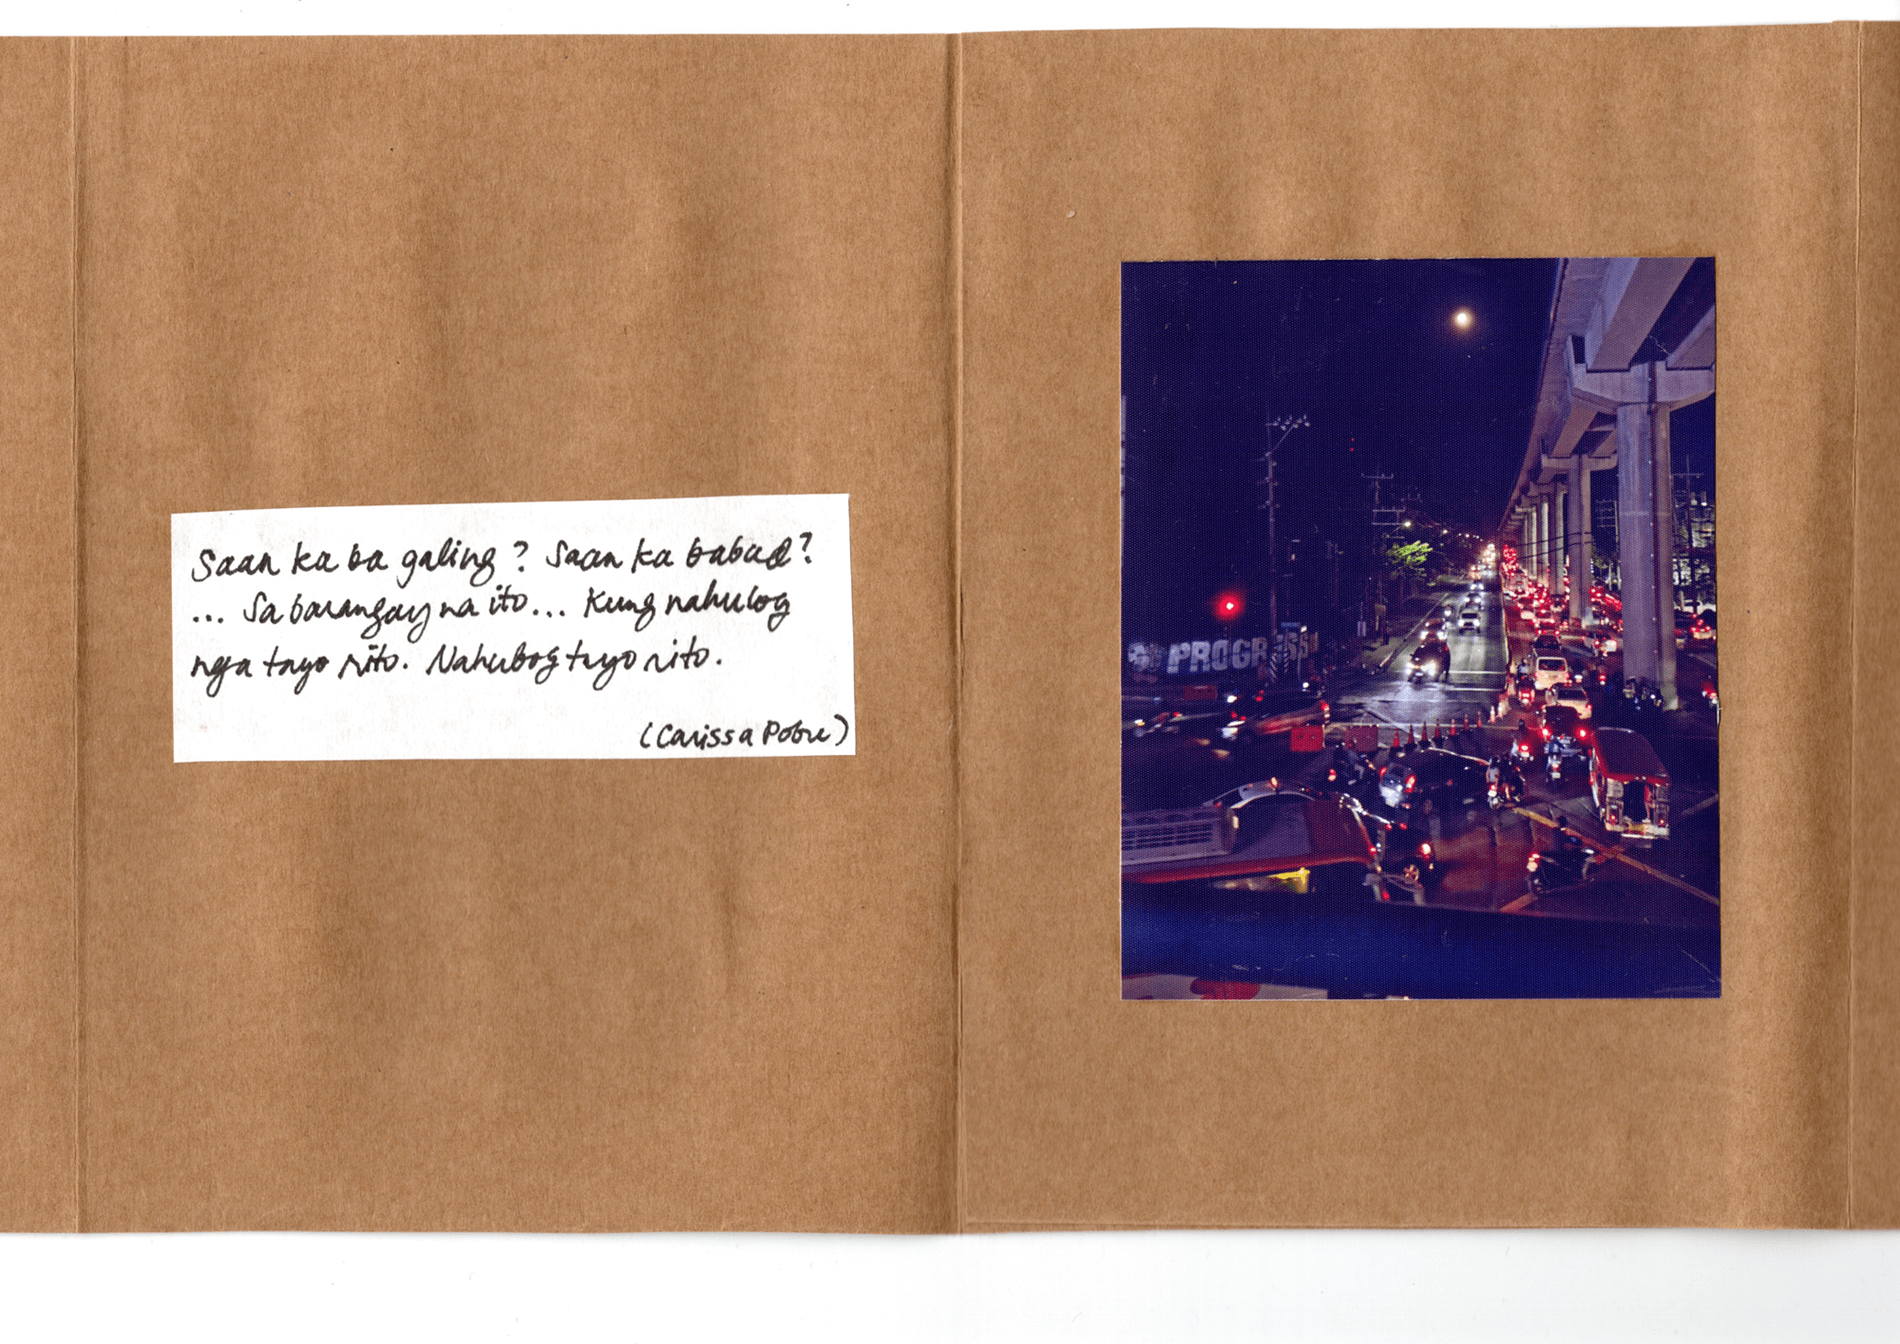 Saan ka ba galing? Saan ka babad?
... Sa barangay na ito... Kung nahulog
nga tayo rito. Nahubog tayo rito.
(Carissa Pobre)
PROGRESS